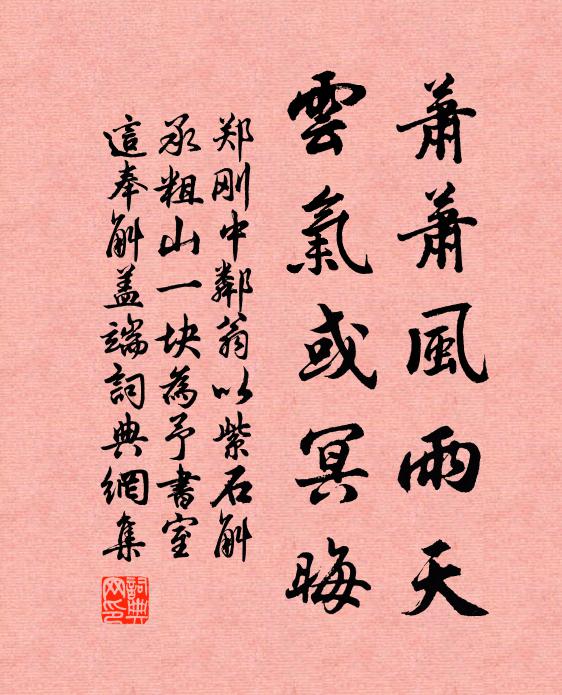 蕭蕭風雨天
雲氣或冥晦
郑刚中鄰翁以紫石斛
承粗山一块為予書室
這奉斛盖端詞典網集
詞典
网印